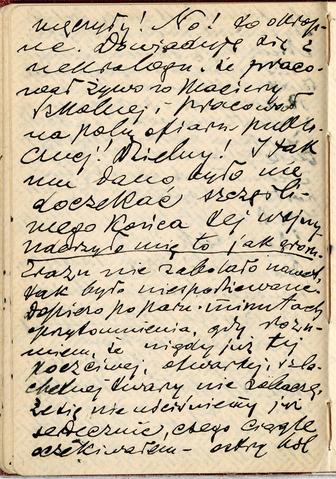 męczyły! No! to okrop-
ne. Dowiaduję się z
nekrologu, że praco-
wał żywo w Macierzy
Szkolnej i pracował
na polu ofiarn. publi-
cznej! Dzielny! I tak
mu dano było nie
doczekać szczęśli-
wego końca tej wojny
uderzyło mię to jak grom.
Zrazu nie zabolało nawet,
tak było niespodziewane
dopiero po paru minutach
oprzytomnienia, gdy rozu-
miem, że nigdy już tej
poczciwej, otwartej, szla-
chetnej twarzy nie zobaczę,
że się nie uściśniemy już
serdecznie, czego ciągle
oczekiwałem – ostry ból